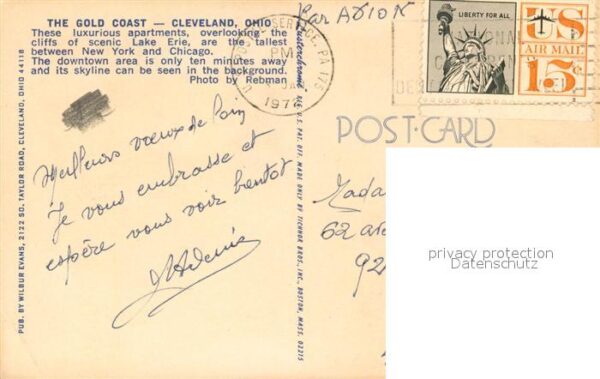 THE GOLD COAST — CLEVELAND, OHIO
These luxurious apartments, overlooking the
cliffs of scenic Lake Erie, are the tallest
between New York and Chicago.
The downtown area is only ten minutes away
and its skyline can be seen in the background.
Photo by Rebman
PUB. BY WILBUR EVANS, 2122 SO. TAYLOR ROAD, CLEVELAND, OHIO 44118
Meilleurs vœux de loin
Je vous embrasse et
espère vous voir bientôt
REG. U.S. PAT. OFF. MADE ONLY BY TICHNOR BROS., INC., BOSTON, MASS. 02215
Par AVION
PA 175
PM
197
LIBERTY FOR ALL
US
AIR MAIL
15¢
POST CARD
Mada
62
92
privacy protection
Datenschutz